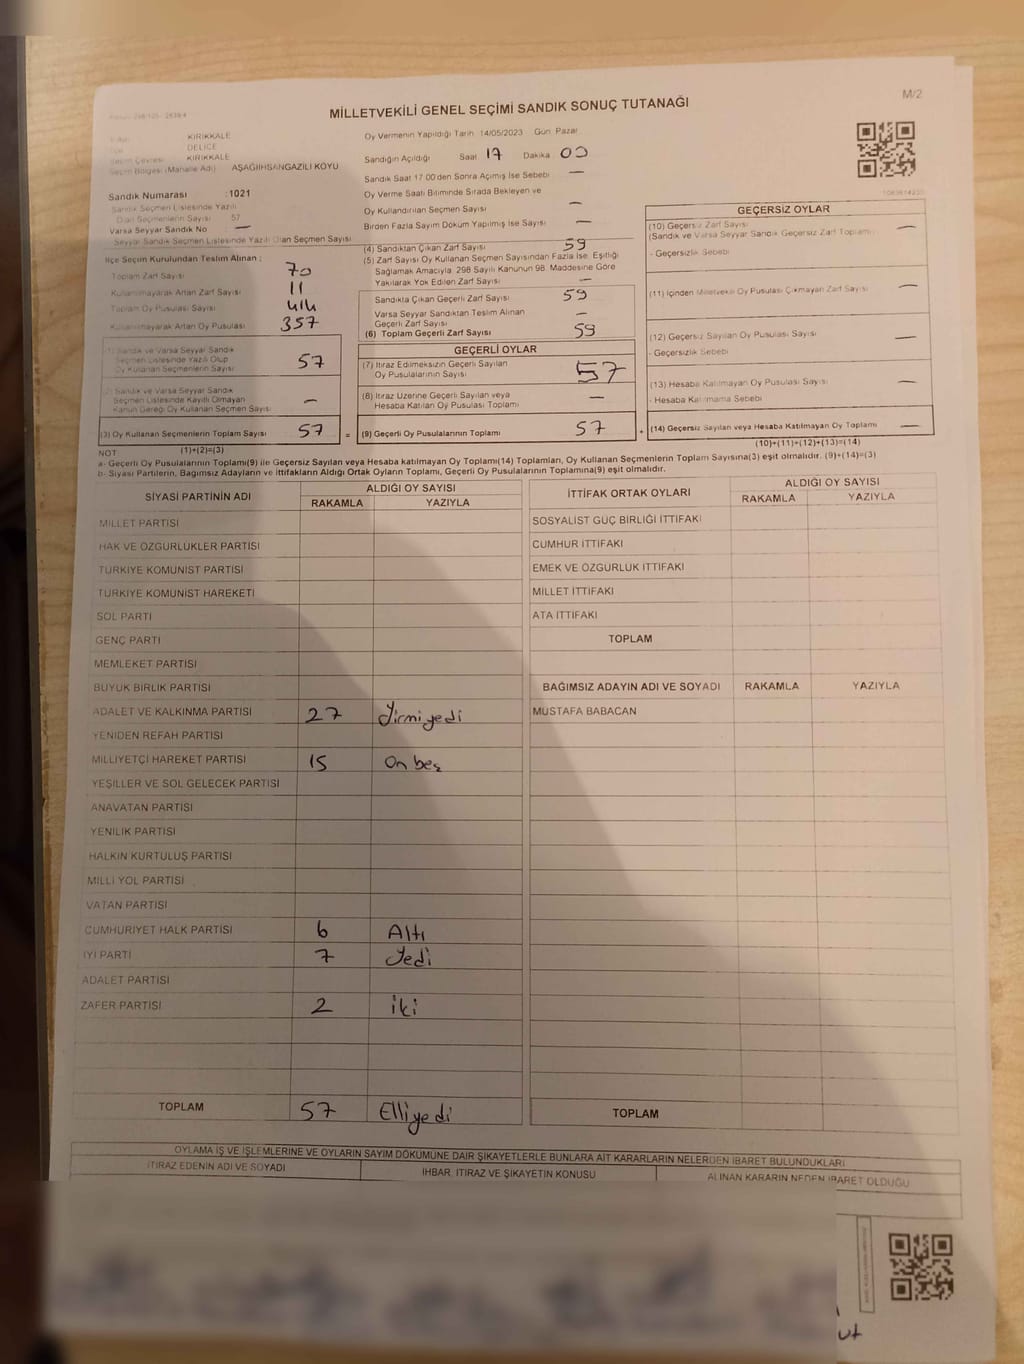 M/2
MİLLETVEKİLİ GENEL SEÇİMİ SANDIK SONUÇ TUTANAĞI
KIRIKKALE
DELİCE
Seçim Çevresi KIRIKKALE
Seçim Bölgesi (Mahalle Adı) AŞAĞIİHSANGAZİLİ KÖYÜ
Sandık Numarası :1021
Sandık Seçmen Listesinde Yazılı
Olan Seçmenlerin Sayısı 57
Varsa Seyyar Sandık No —
Seyyar Sandık Seçmen Listesinde Yazılı Olan Seçmen Sayısı
Oy Vermenin Yapıldığı Tarih 14/05/2023 Gün Pazar
Sandığın Açıldığı Saat 17 Dakika 00
Sandık Saat 17:00'den Sonra Açılmış İse Sebebi —
Oy Verme Saati Bitiminde Sırada Bekleyen ve
Oy Kullandırılan Seçmen Sayısı —
Birden Fazla Sayım Döküm Yapılmış İse Sayısı —
İlçe Seçim Kurulundan Teslim Alınan ;
Toplam Zarf Sayısı 70
Kullanılmayarak Artan Zarf Sayısı 11
Toplam Oy Pusulası Sayısı 414
Kullanılmayarak Artan Oy Pusulası 357
(1) Sandık ve Varsa Seyyar Sandık
Seçmen Listesinde Yazılı Olup
Oy Kullanan Seçmenlerin Sayısı 57
(2) Sandık ve Varsa Seyyar Sandık
Seçmen Listesinde Kayıtlı Olmayan
Kanun Gereği Oy Kullanan Seçmen Sayısı —
(3) Oy Kullanan Seçmenlerin Toplam Sayısı 57 =
(1)+(2)=(3)
(4) Sandıktan Çıkan Zarf Sayısı 59
(5) Zarf Sayısı Oy Kullanan Seçmen Sayısından Fazla İse, Eşitliği
Sağlamak Amacıyla, 298 Sayılı Kanunun 98. Maddesine Göre
Yakılarak Yok Edilen Zarf Sayısı —
Sandıkta Çıkan Geçerli Zarf Sayısı 59
Varsa Seyyar Sandıktan Teslim Alınan
Geçerli Zarf Sayısı —
(6) Toplam Geçerli Zarf Sayısı 59
GEÇERLİ OYLAR
(7) İtiraz Edilmeksizin Geçerli Sayılan
Oy Pusulalarının Sayısı 57
(8) İtiraz Üzerine Geçerli Sayılan veya
Hesaba Katılan Oy Pusulası Toplamı —
(9) Geçerli Oy Pusulalarının Toplamı 57 +
GEÇERSİZ OYLAR
(10) Geçersiz Zarf Sayısı
(Sandık ve Varsa Seyyar Sandık Geçersiz Zarf Toplamı) —
- Geçersizlik Sebebi
(11) İçinden Milletvekili Oy Pusulası Çıkmayan Zarf Sayısı —
(12) Geçersiz Sayılan Oy Pusulası Sayısı —
- Geçersizlik Sebebi
(13) Hesaba Katılmayan Oy Pusulası Sayısı —
- Hesaba Katılmama Sebebi
(14) Geçersiz Sayılan veya Hesaba Katılmayan Oy Toplamı —
(10)+(11)+(12)+(13)=(14)
NOT
a- Geçerli Oy Pusulalarının Toplamı(9) ile Geçersiz Sayılan veya Hesaba katılmayan Oy Toplamı(14) Toplamları, Oy Kullanan Seçmenlerin Toplam Sayısına(3) eşit olmalıdır. (9)+(14)=(3)
b- Siyasi Partilerin, Bağımsız Adayların ve İttifakların Aldığı Ortak Oyların Toplamı, Geçerli Oy Pusulalarının Toplamına(9) eşit olmalıdır.
SİYASİ PARTİNİN ADI ALDIĞI OY SAYISI
RAKAMLA YAZIYLA
MİLLET PARTİSİ
HAK VE ÖZGÜRLÜKLER PARTİSİ
TÜRKİYE KOMÜNİST PARTİSİ
TÜRKİYE KOMÜNİST HAREKETİ
SOL PARTİ
GENÇ PARTİ
MEMLEKET PARTİSİ
BÜYÜK BİRLİK PARTİSİ
ADALET VE KALKINMA PARTİSİ 27 Yirmiyedi
YENİDEN REFAH PARTİSİ
MİLLİYETÇİ HAREKET PARTİSİ 15 On beş
YEŞİLLER VE SOL GELECEK PARTİSİ
ANAVATAN PARTİSİ
YENİLİK PARTİSİ
HALKIN KURTULUŞ PARTİSİ
MİLLİ YOL PARTİSİ
VATAN PARTİSİ
CUMHURİYET HALK PARTİSİ 6 Altı
İYİ PARTİ 7 Yedi
ADALET PARTİSİ
ZAFER PARTİSİ 2 iki
TOPLAM 57 Elliyedi
İTTİFAK ORTAK OYLARI ALDIĞI OY SAYISI
RAKAMLA YAZIYLA
SOSYALİST GÜÇ BİRLİĞİ İTTİFAKI
CUMHUR İTTİFAKI
EMEK VE ÖZGÜRLÜK İTTİFAKI
MİLLET İTTİFAKI
ATA İTTİFAKI
TOPLAM
BAĞIMSIZ ADAYIN ADI VE SOYADI RAKAMLA YAZIYLA
MUSTAFA BABACAN
TOPLAM
OYLAMA İŞ VE İŞLEMLERİNE VE OYLARIN SAYIM DÖKÜMÜNE DAİR ŞİKAYETLERLE BUNLARA AİT KARARLARIN NELERDEN İBARET BULUNDUKLARI
İTİRAZ EDENİN ADI VE SOYADI İHBAR, İTİRAZ VE ŞİKAYETİN KONUSU ALINAN KARARIN NEDEN İBARET OLDUĞU
ut